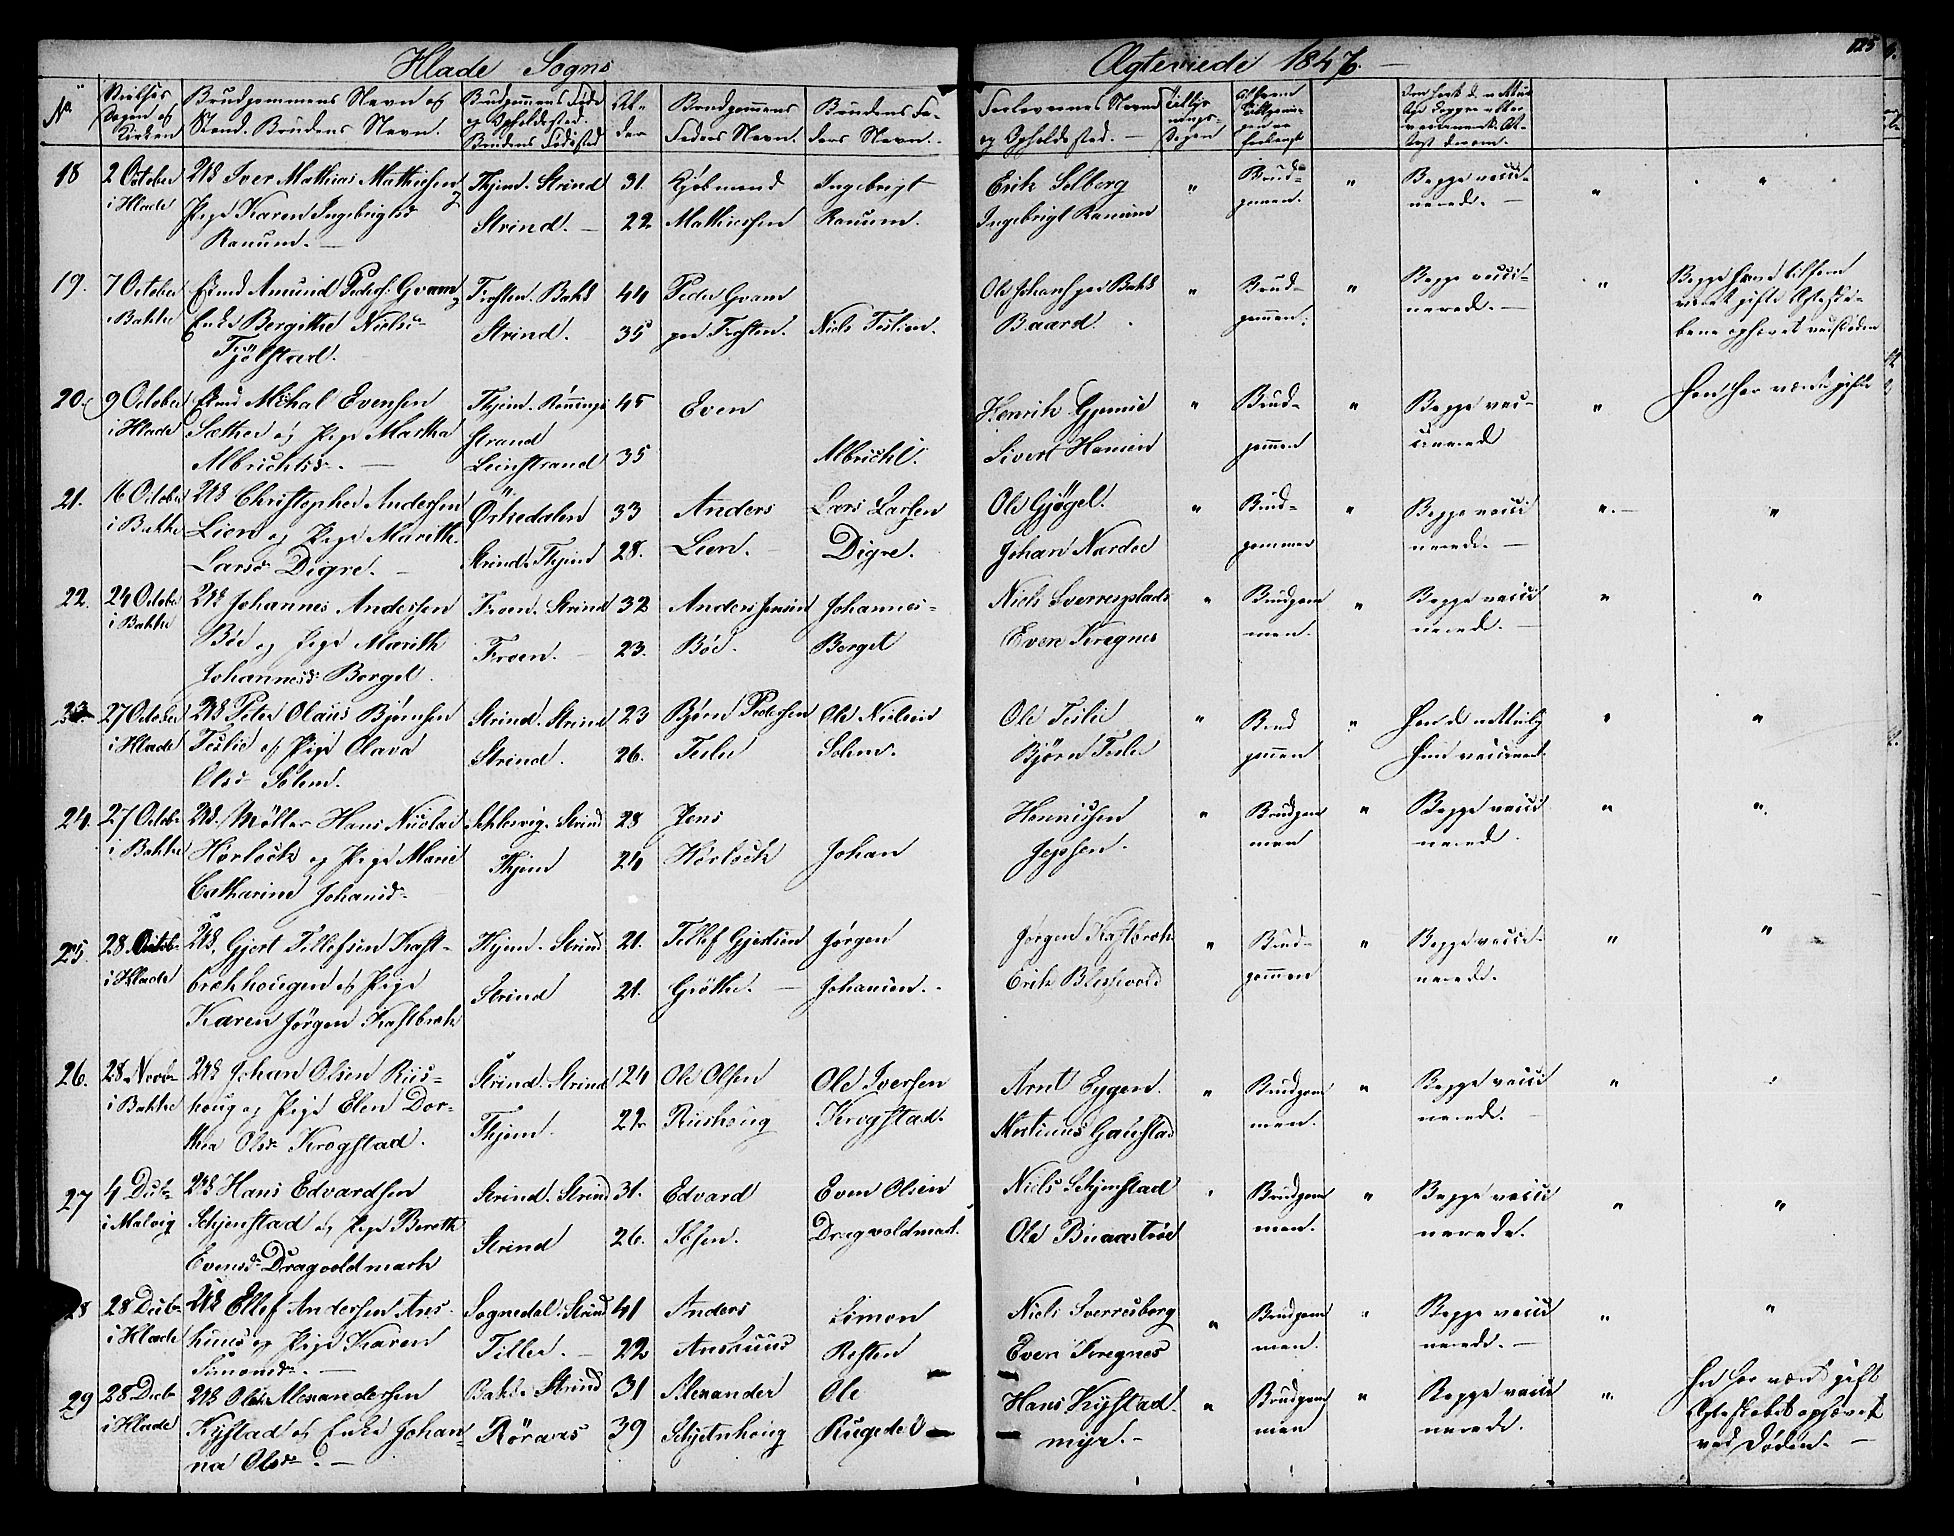 Hlade Sogns
Ægteviede 1847.
125
No
Vielses Dagen og Kirken
Brudgommens Navn og Stand. Brudens Navn.
Brudgommens Føde og Opholdssted. Brudens Fødested
Al-der
Brudgommens Faders Navn.
Brudens Faders Navn.
Forlovernes Navne og Opholdssted.
18
2 October i Hlade
UK Iver Mathias Mathiesen og
Pige Karen Ingebrigtsd
Ranum.
Thjem. Strind
Strind.
31.
22
Kjøbmand
Mathiesen
Ingebrigt
Ranum.
Erik Solberg
Ingebrigt Ranum
"
Brudgommen.
"
Begge vaccinerede.
"
"
19.
7 October
Bakke
Enkmd Amund Peders. Gvam og
Enke Bergitha Niels-
Tjølstad.
Frosten. Bakl
Strind.
44
35
Peder Gvam
paa Frosten.
Niels Teslien.
Ole Johans paa Bakl
Baard.
"
Brudgommen.
"
Begge vaccinerede.
"
Begge have tilforn
været gifte Ægteska-
bene ophævet ved Døden
20.
9 October
i Hlade
Enkmd Michal Evensen
Sæther og Pige Martha
Albrichtsd.
Thjem.
Strand
Leinstrand
45
35
Even
Albricht.
Henrik
Sivert Hansen
"
Brudgommen
"
Begge vaccinerede
"
Han har været gift
21.
16 October
i Bakke
UK Christopher Andersen
Lien og Pige Marith
Larsd Digre.
Ørkedalen
Strind. Thjem
33
28.
Anders
Lien.
Lars Larsen
Digre.
Ole Gjøgel.
Johan Nardoe
"
Brudgommen
"
Begge vaccinerede.
"
"
22.
24 Octobr
i Bakke
UK Johannes Andersen
Böe og Pige Marith
Johannesd. Borget.
Froen. Strind
Froen.
32
23.
Anders Jensen
Böe.
Johannes
Borget
Niels Sverresplads
Even Kregnes
"
Brudgommen.
"
Begge vaccinerede.
"
"
23.
27 October
i Hlade
UK Peter Olaus Bjørnsen
Teslie og Pige Olava
Olsd Solem.
Strind. Strind
Strind.
23
26.
Bjørn Pedersen
Teslie
Ole Nielsen
Solem.
Ole Teslie
Bjørn Teslie
"
Brudgommen
"
"
"
24.
27 Octobr
i Bakke
UK. Møller Hans Nicolai
Horlock og Pige Marie
Catharina Johansd.
Schlesvig. Strind
Thjem
28
24
Jens
Horlock
Johan
Hennissen
Jepsen.
"
Brudgommen
"
Begge vaccinerede.
"
"
25.
28. Octob.
i Hlade
UK. Gjert Tellefsen Kast-
brekhougen og Pige
Karen Jørgen Kastbrek
Thjem. Strind
Strind
21.
21.
Tellef Gjertsen
Grøtte.
Jørgen
Johansen.
Jørgen Kastbrek
Erik
"
Brudgommen
"
Begge vaccinerede.
"
"
26.
28. Novb.
i Bakke
UK Johan Olsen Riis-
houg og Pige Elen Dor-
thea Olsd. Krogstad.
Strind. Strind
Thjem.
24
22
Ole Olsen
Riishoug
Ole Iversen
Krogstad.
Arnt Eggen.
Mortinus Gaustad
"
Brudgommen.
"
Begge vaccinerede.
"
27
4 Decb.
i Malvig
UK Hans Edvardsen
Schjenstad og Pige Bereth
Evensd. Dragvoldmark
Strind. Strind
Strind
31.
26.
Edvard
Ibsen.
Even Olsen
Dragvoldmark
Niels Schjenstad
Ole
"
Brudgommen.
"
Begge vaccinerede.
"
"
28
28 Decb.
i Hlade
UK Ellef Andersen Ans-
huus og Pige Karen
Simonsd.
Sognedal. Strind
Tiller.
41
22
Anders
Anshuus
Simon
Røsten
Niels Sverresborg
Even Kregnes
"
Brudgommen.
"
Begge vaccinerede.
"
"
29
28 Decb.
i Hlade
UK Ole Alexandersen
Kystad og Enke Johan-
na Olsd.
Bakl. Strind
Röraas
31
39
Alexander
Ole
Rugedel
Hans Kystad-
myr.
"
Brudgommen
"
Begge vaccinerede.
"
Hun har været gift
Ægteskabet ophævet
ved Døden.